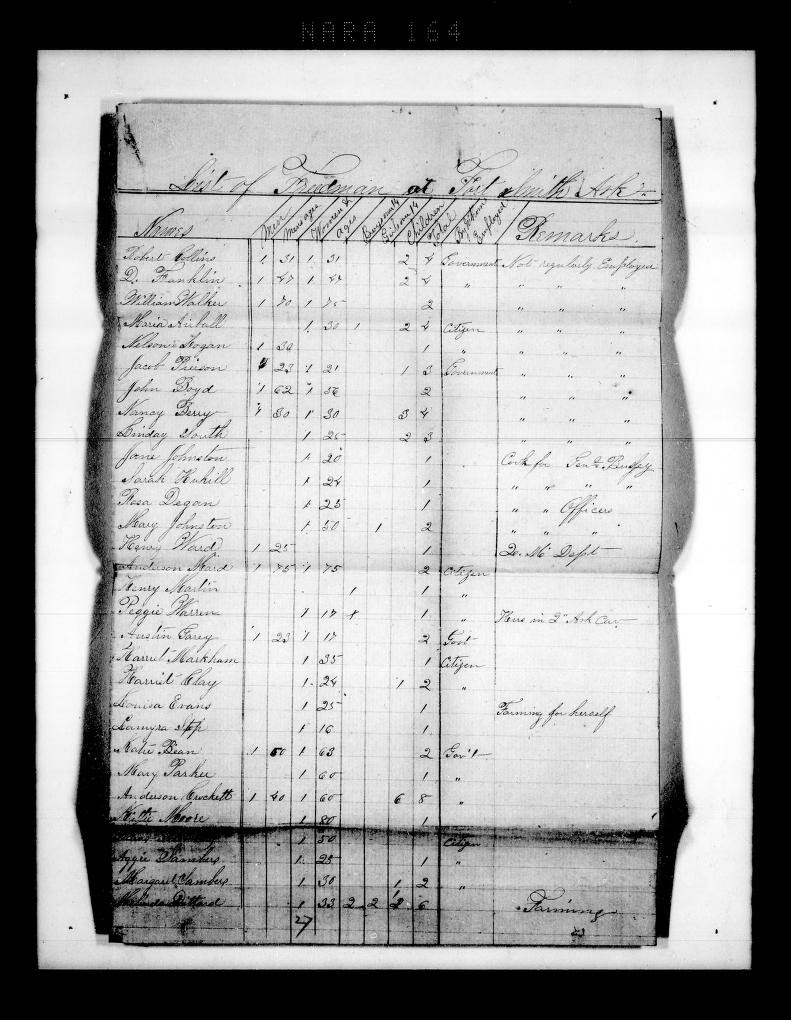 NARA 164
List of Freedman at Fort Smith Ark
Names Men Mens ages Women & ages Boys over 14 Girls over 14 Children Total By whom Employed Remarks
Robert Collins 1 31 1 31 2 4 Government Not regularly Employed
D. Franklin 1 47 1 47 2 4 " " " "
William Walker 1 70 1 75 2 " " "
Maria Airball 1 30 1 2 4 Citizen " " "
Nelson Hogan 1 30 1 " " " "
Jacob Pierson 1 23 1 21 1 3 Government " " "
John Boyd 1 62 1 56 2 " " "
Nancy Berry 1 30 1 30 3 4 " " "
Linday South 1 25 2 3 " " "
Jane Johnston 1 20 1 Cook for Genl Bussey
Sarah Hukill 1 24 1 " " " "
Rosa Degan 1 25 1 " " Officers
Mary Johnston 1 50 1 2 " " " "
Henry Ward 1 25 1 Q. M. Dept
Anderson Ward 1 75 1 75 2 Citizen
Henry Martin 1 1 "
Peggie Warren 1 17 1 " Hus in 2" Ark Cav
Austin Garey 1 23 1 17 2 Govt
Harriet Markham 1 35 1 Citizen
Harriet Clay 1 24 1 2 "
Louisa Evans 1 25 1 Farming for herself
Lamyra Stop 1 16 1
Katie Bean 1 60 1 63 2 Gov't
Mary Parker 1 60 1 "
Anderson Crockett 1 40 1 60 6 8 "
Kittie Moore 1 80 1
1 50 1 Citizen
Aggie Sambers 1 25 1 "
Margaret Sambers 1 30 1 2 "
Malinda Dillard 1 33 2 2 2 6 Farming
27